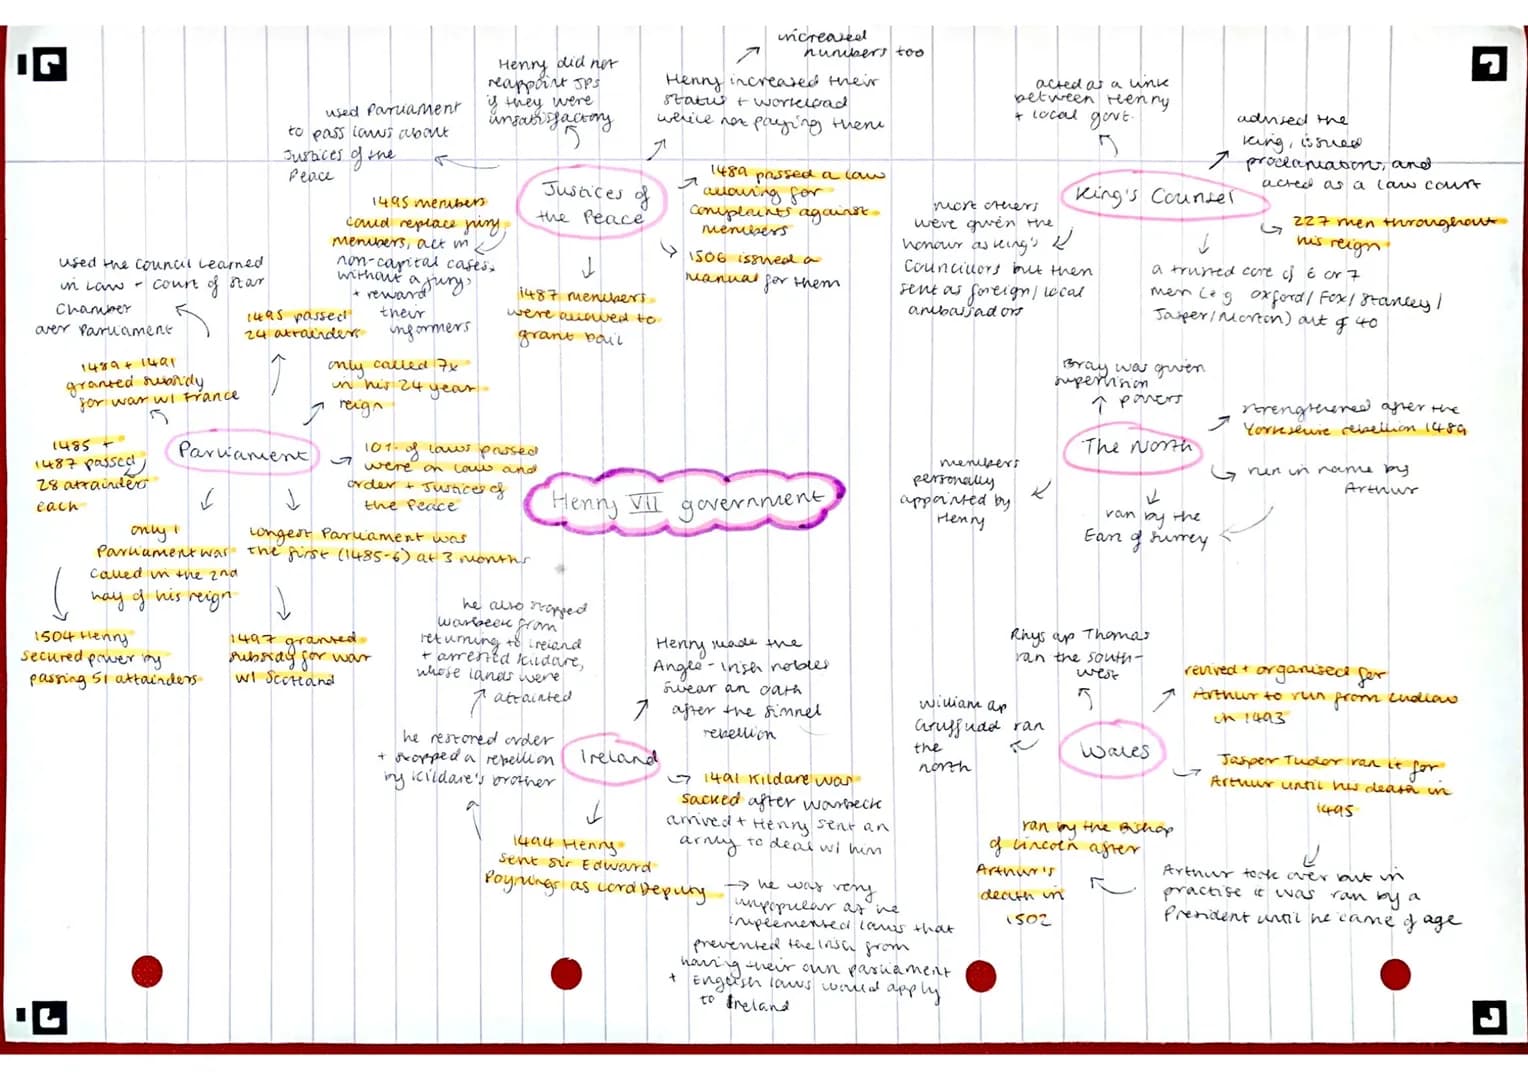 Henry VII government
Justices of
the Peace
used Parliament
to pass laws about
Justices of the
Peace
Henry did not
reappoint JPs
if they were
unsatisfactory
Henry increased their
status + workload
while not paying them
increased
numbers too
1489 passed a law
allowing for
complaints against
members
1506 issued a
manual for them
1487 members
were allowed to
grant bail
1495 members
could replace jury
members, act in
non-capital cases,
without a jury,
+ reward
their
informers
King's Counsel
acted as a link
between Henry
+ local govt.
advised the
king, issued
proclamations, and
acted as a law court
227 men throughout
his reign
a trusted core of 6 or 7
men (e.g Oxford/Fox/Stanley/
Jasper/Morton) out of 40
most others
were given the
honour as King's
Councillors but then
sent as foreign/local
ambassadors
Parliament
used the Council Learned
in Law - Court of Star
Chamber
over Parliament
1495 passed
24 attainders
only called 7x
in his 24 year
reign
1489 + 1491
granted subsidy
for war w/ France
1485 +
1487 passed
28 attainders
each
10% of laws passed
were on law and
order + Justices of
the Peace
only 1
Parliament was
called in the 2nd
half of his reign
longest Parliament was
the first (1485-6) at 3 months
1504 Henry
secured power by
passing 51 attainders
1497 granted
subsidy for war
w/ Scotland
The North
Bray was given
supervision
powers
strengthened after the
Yorkshire rebellion 1489
run in name by
Arthur
ran by the
Earl of Surrey
members
personally
appointed by
Henry
Ireland
he also stopped
Warbeck from
returning to Ireland
+ arrested Kildare,
whose lands were
attainted
Henry made the
Anglo-Irish nobles
swear an oath
after the Simnel
rebellion
he restored order
+ stopped a rebellion
by Kildare's brother
1491 Kildare was
sacked after Warbeck
arrived + Henry sent an
army to deal w/ him
1494 Henry
sent Sir Edward
Poynings as Lord Deputy
he was very
unpopular as he
implemented laws that
prevented the Irish from
having their own parliament
+ English laws would apply
to Ireland
Wales
Rhys ap Thomas
ran the south-
west
William ap
Gruffudd ran
the
north
revived + organised for
Arthur to run from Ludlow
in 1493
Jasper Tudor ran it for
Arthur until his death in
1495
Arthur took over but in
practise it was ran by a
President until he came of age
ran by the Bishop
of Lincoln after
Arthur's
death in
1502